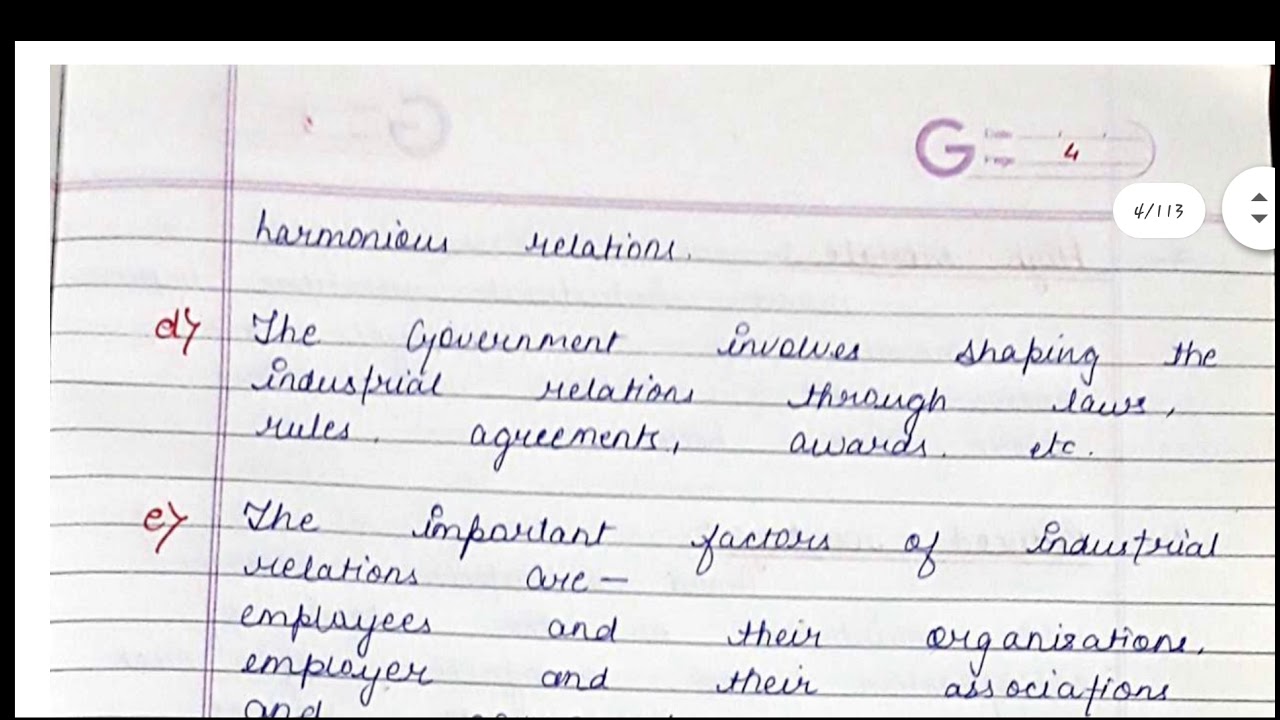 G 4
4/113
harmonious relations.
d) The Government involves shaping the
industrial relations through laws,
rules. agreements, awards. etc.
e) The important factors of industrial
relations are—
employees and their organisations,
employer and their associations
and